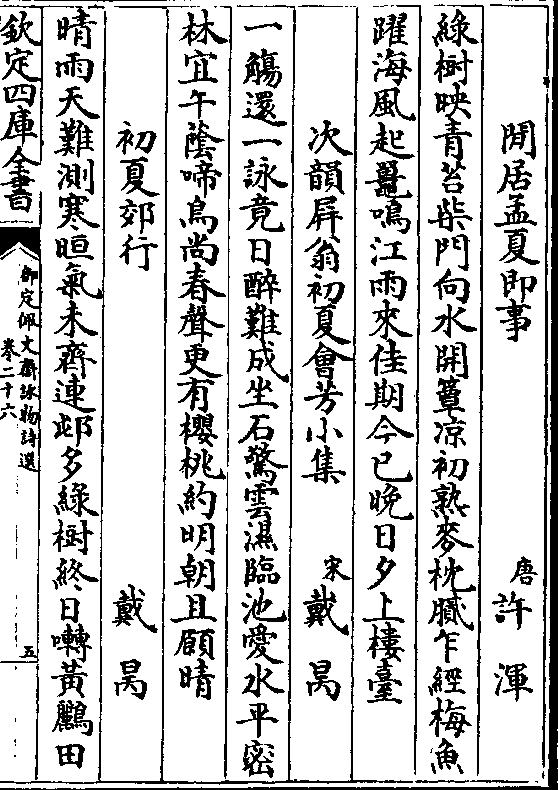 閒居孟夏即事　唐許渾
綠樹映青苔柴門向水開簟凉初熟麥枕膩乍經梅魚
躍海風起鼉鳴江雨來佳期今已晚日夕上樓臺
次韻屛翁初夏會芳小集　宋戴昺
一觴還一詠竟日醉難成坐石驚雲濕臨池愛水平密
林宜午蔭啼鳥尚春聲更有櫻桃約明朝且願晴
初夏郊行　戴昺
晴雨天難測寒暄氣未齊連邨多綠樹終日囀黃鸝田
欽定四庫全書
御定佩文齋詠物詩選
卷二十六
五